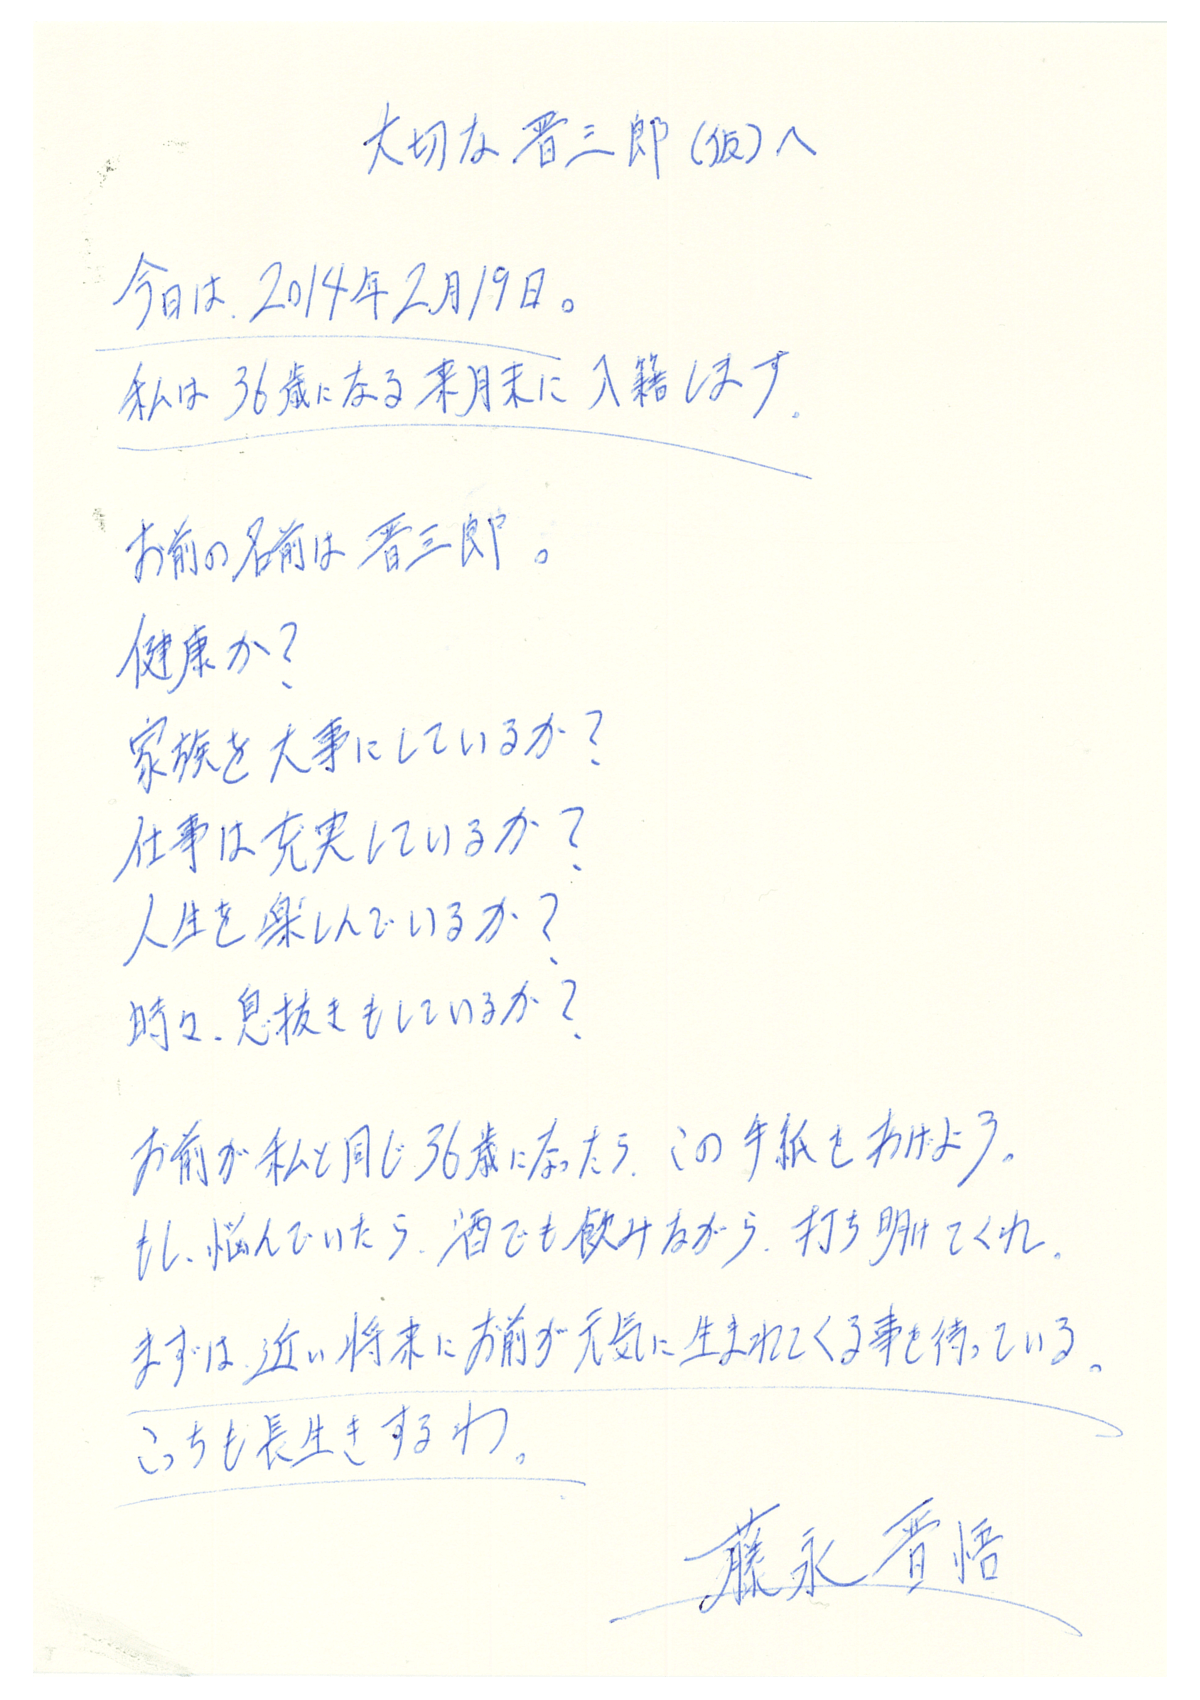 大切な晋三郎(仮)へ
今日は、2014年2月19日。
私は36歳になる来月末に入籍します。
お前の名前は晋三郎。
健康か?
家族を大事にしているか?
仕事は充実しているか?
人生を楽しんでいるか?
時々、息抜きもしているか?
お前が私と同じ36歳になったら、この手紙をあげよう。
もし、悩んでいたら、酒でも飲みながら、打ち明けてくれ。
まずは、近い将来にお前が元気に生まれてくる事を待っている。
こっちも長生きするわ。
藤永晋悟